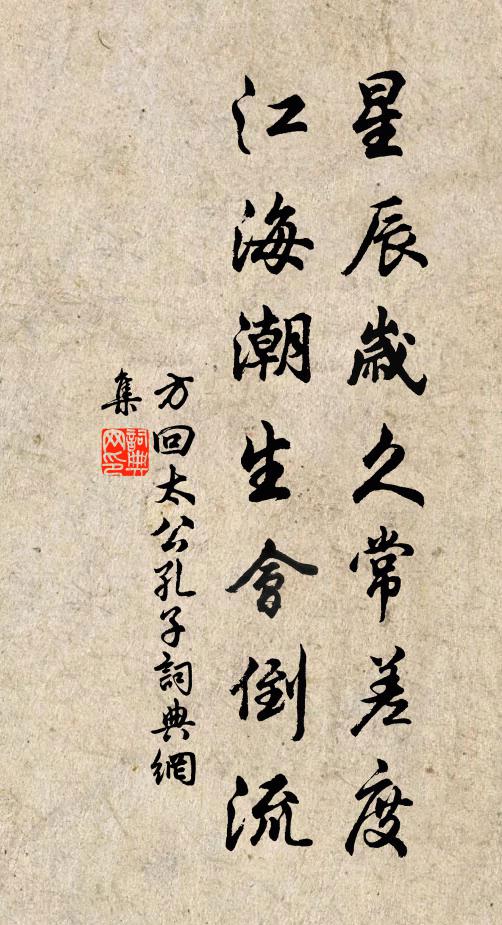 星辰歲久常差度
江海潮生會倒流
方回太公孔子詞典網
集
詞典网印